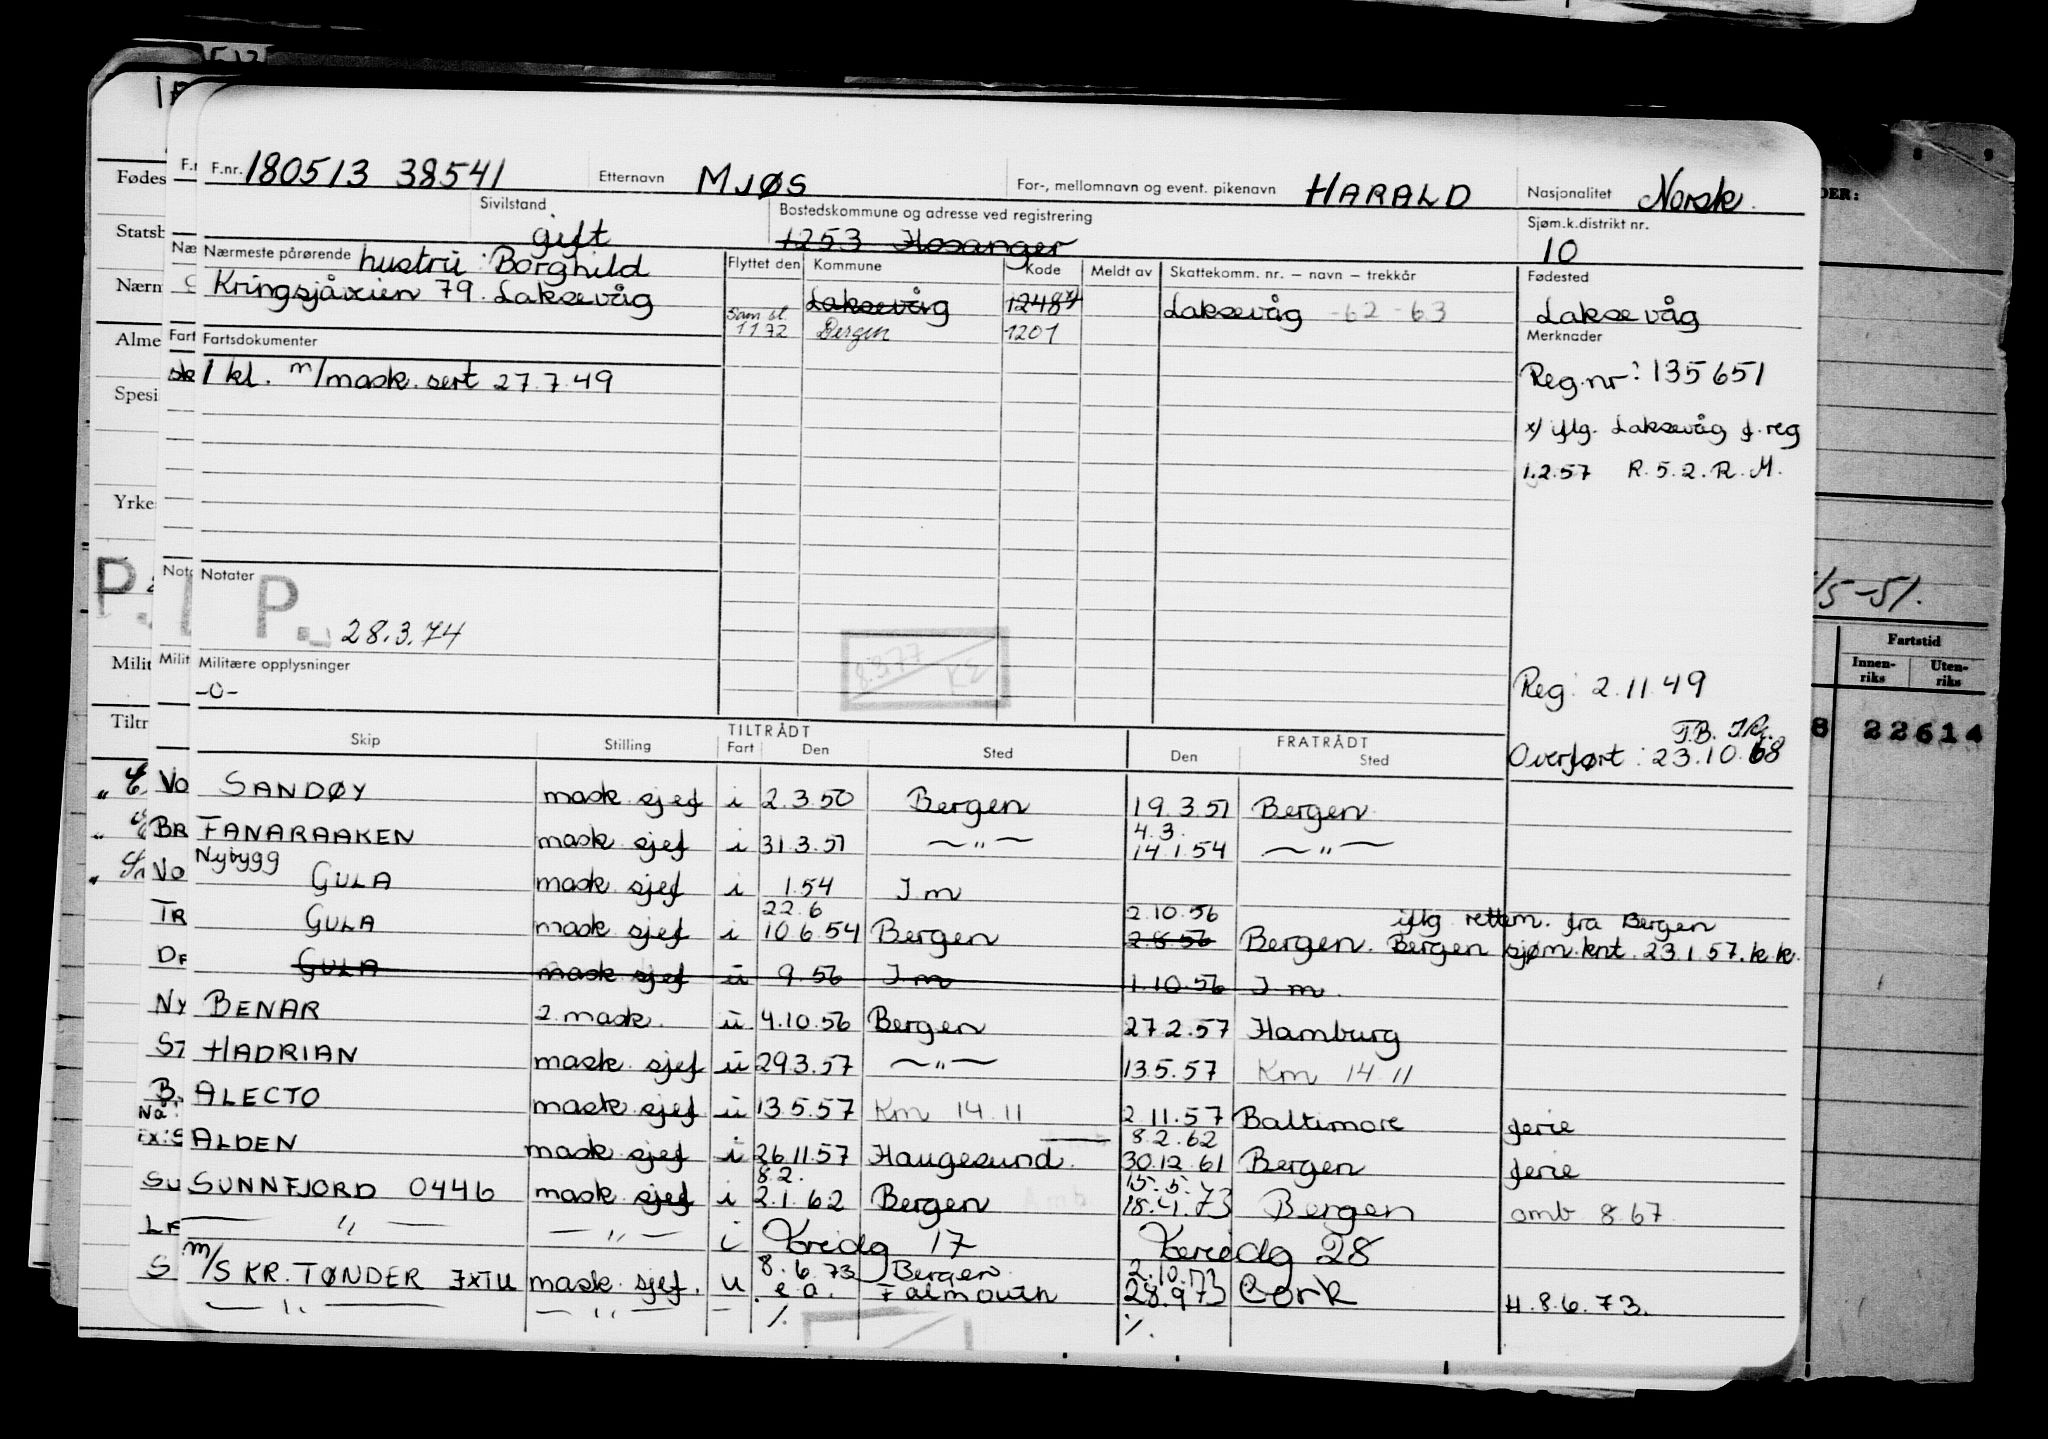 F.nr. 180513 38541 Etternavn MJØS For-, mellomnavn og event. pikenavn HARALD Nasjonalitet Norsk.
Sivilstand gift Bostedskommune og adresse ved registrering 1253 Hosanger Sjøm.k.distrikt nr. 10
Nærmeste pårørende hustru: Borghild
Kringsjåveien 79. Laksevåg
Flyttet den Kommune Kode Meldt av Skattekomm. nr. – navn – trekkår Fødested
Laksevåg 1248 x) Laksevåg -62-63 Laksevåg
1172 Bergen 1201
Fartsdokumenter Merknader
1 kl. m/mask. sert 27.7.49
Reg.nr: 135651
x) iflg. Laksevåg f.reg
1.2.57 R.5.2.R.M.
Notater
P. 28.3.74
8.3.77
Militære opplysninger
-0-
Reg: 2.11.49
Overført: 23.10.68
TILTRÅDT FRATRÅDT
Skip Stilling Fart Den Sted Den Sted
SANDØY mask sjef i 2.3.50 Bergen 19.3.51 Bergen
4.3.
FANARAAKEN mask sjef i 31.3.51 — " — 14.1.54 — " —
Nybygg GULA mask sjef i 1.54 I m
22.6 2.10.56 iflg rettem. fra Bergen
GULA mask sjef i 10.6.54 Bergen 2.8.56 Bergen. Bergen sjøm.knt. 23.1.57. k k.
GULA mask sjef u 9.56 I m 1.10.56 I m.
BENAR 2. mask. u 4.10.56 Bergen 27.2.57 Hamburg
HADRIAN mask sjef u 29.3.57 — " — 13.5.57 Km 14.11
ALECTO mask sjef u 13.5.57 Km 14.11 2.11.57 Baltimore ferie
8.2.62
ALDEN mask sjef i 26.11.57 Haugesund. 30.12.61 Bergen ferie
8.2. 15.5.
SUNNFJORD 0446 mask sjef i 2.1.62 Bergen 18.4.73 Bergen omb 8.67
— " — — " — i 17 28
8.6.73 Bergen 2.10.73
m/S KR. TØNDER JXTU mask sjef. u e.a. Falmouth 28.9.73 Cork H. 8.6.73.
— " — — " — – ·/. ·/.
Fødes
Statsb
Nærm
Alme
Spesi
Yrke
P.
Milit
Tiltr
DER:
/5-51.
Fartstid
Innenriks Utenriks
8 22614